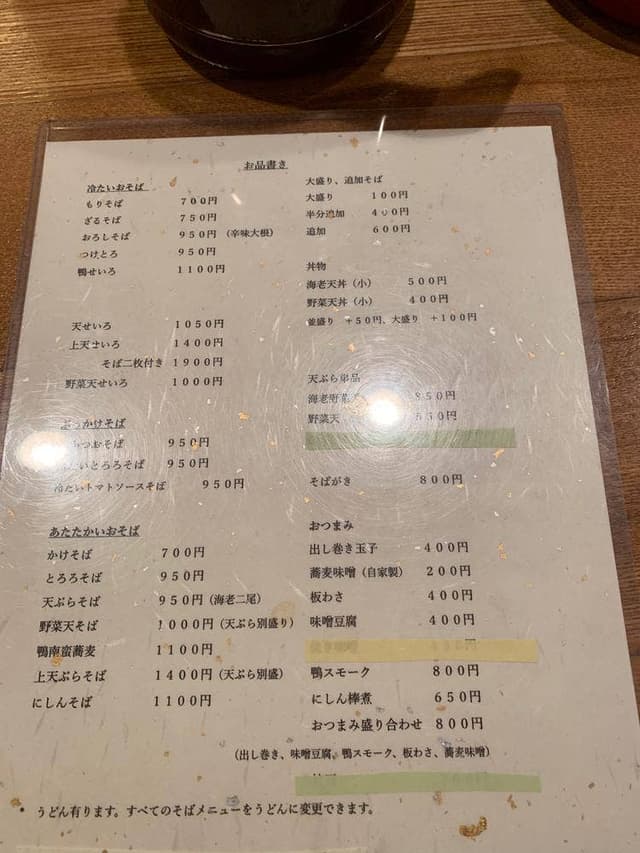 お品書き
冷たいおそば
もりそば 700円
ざるそば 750円
おろしそば 950円 (辛味大根)
つけとろ 950円
鴨せいろ 1100円
天せいろ 1050円
上天せいろ 1400円
そば二枚付き 1900円
野菜天せいろ 1000円
ぶっかけそば
かつおそば 950円
とろろそば 950円
冷たいトマトソースそば 950円
あたたかいおそば
かけそば 700円
とろろそば 950円
天ぷらそば 950円 (海老二尾)
野菜天そば 1000円 (天ぷら別盛り)
鴨南蛮蕎麦 1100円
上天ぷらそば 1400円 (天ぷら別盛)
にしんそば 1100円
大盛り、追加そば
大盛り 100円
半分追加 400円
追加 600円
丼物
海老天丼(小) 500円
野菜天丼(小) 400円
並盛り +50円、大盛り +100円
天ぷら単品
海老野菜天 850円
野菜天 550円
そばがき 800円
おつまみ
出し巻き玉子 400円
蕎麦味噌(自家製) 200円
板わさ 400円
味噌豆腐 400円
鴨スモーク 800円
にしん棒煮 650円
おつまみ盛り合わせ 800円
(出し巻き、味噌豆腐、鴨スモーク、板わさ、蕎麦味噌)
* うどん有ります。すべてのそばメニューをうどんに変更できます。